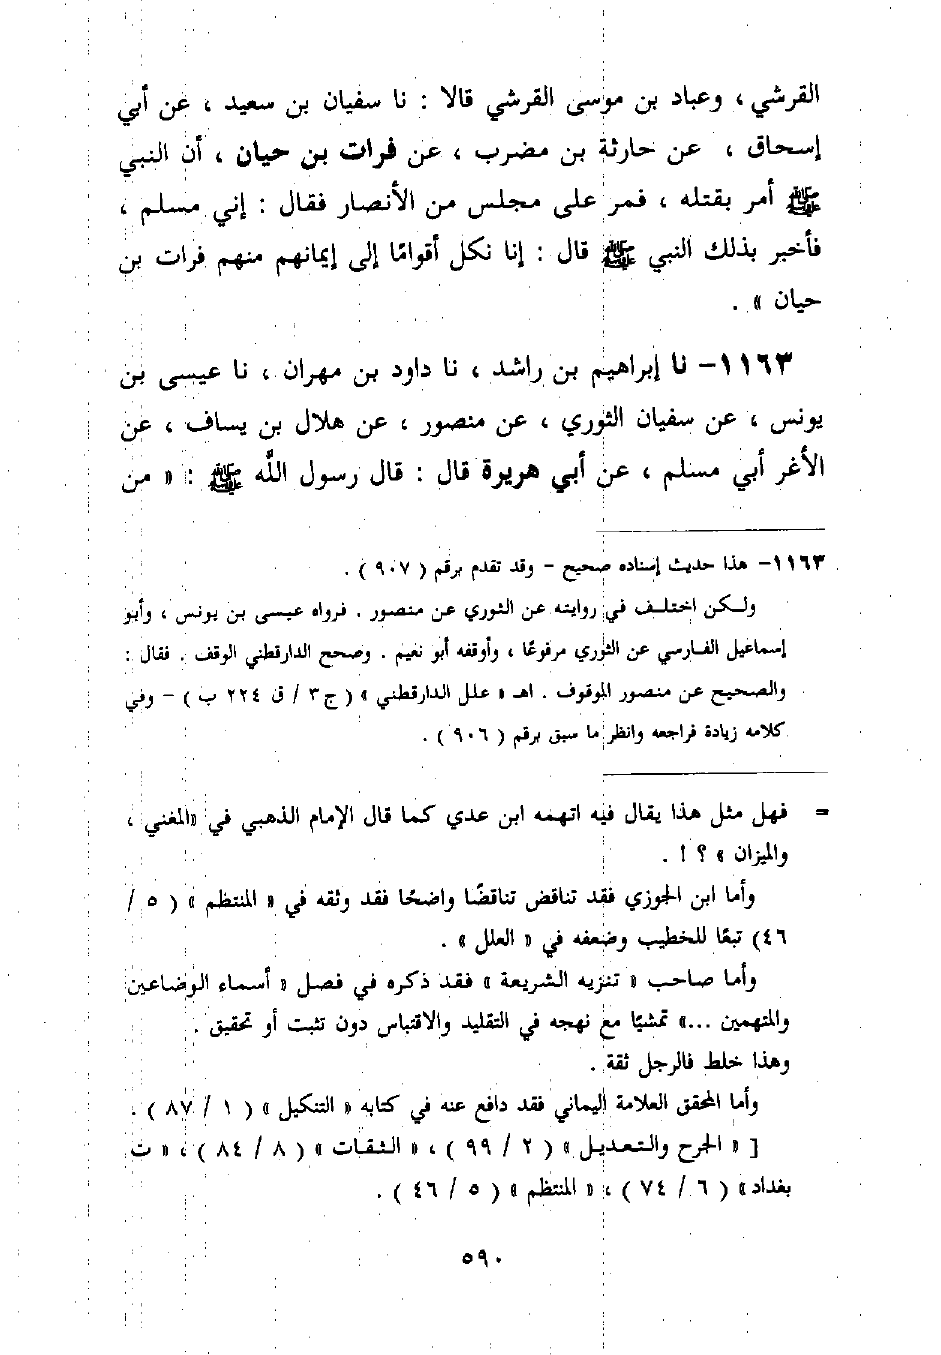 القرشي ، وعباد بن موسى القرشي قالا : نا سفيان بن سعيد ، عن أبي
إسحاق ، عن حارثة بن مضرب ، عن فرات بن حيان ، أن النبي
ﷺ أمر بقتله ، فمر على مجلس من الأنصار فقال : إني مسلم ،
فأخبر بذلك النبي ﷺ قال : إنا نكل أقوامًا إلى إيمانهم منهم فرات بن
حيان » .
١١٦٣- نا إبراهيم بن راشد ، نا داود بن مهران ، نا عيسى بن
يونس ، عن سفيان الثوري ، عن منصور ، عن هلال بن يساف ، عن
الأغر أبي مسلم ، عن أبي هريرة قال : قال رسول اللَّه ﷺ : « من
١١٦٣- هذا حديث إسناده صحيح - وقد تقدم برقم ( ٩٠٧ ) .
ولكن اختلف في روايته عن الثوري عن منصور . فرواه عيسى بن يونس ، وأبو
إسماعيل الفارسي عن الثوري مرفوعًا ، وأوقفه أبو نعيم . وصحح الدارقطني الوقف . فقال :
والصحيح عن منصور الموقوف . اهـ « علل الدارقطني » ( ج ٣ / ق ٢٢٤ ب ) - وفي
كلامه زيادة فراجعه وانظر ما سبق برقم ( ٩٠٦ ) .
= فهل مثل هذا يقال فيه اتهمه ابن عدي كما قال الإمام الذهبي في «المغني ،
والميزان » ؟ ! .
وأما ابن الجوزي فقد تناقض تناقضًا واضحًا فقد وثقه في « المنتظم » ( ٥ /
٤٦) تبعًا للخطيب وضعفه في « العلل » .
وأما صاحب « تنزيه الشريعة » فقد ذكره في فصل « أسماء الوضاعين
والمتهمين ...» تمشيًا مع نهجه في التقليد والاقتباس دون تثبت أو تحقيق .
وهذا خلط فالرجل ثقة .
وأما المحقق العلامة اليماني فقد دافع عنه في كتابه « التنكيل » ( ١ / ٨٧ ) .
[ « الجرح والتعديل » ( ٢ / ٩٩ ) ، « الثقات » ( ٨ / ٨٤ ) ، « ت
بغداد» ( ٦ / ٧٤ ) ، « المنتظم » ( ٥ / ٤٦ ) .
٥٩٠